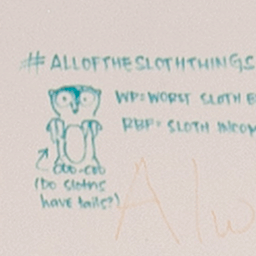 #ALLOFTHESLOTHTHINGS
WP=WORST SLOTH E
RBF= SLOTH INCOM
(Do sloths
have tails?)
Alw